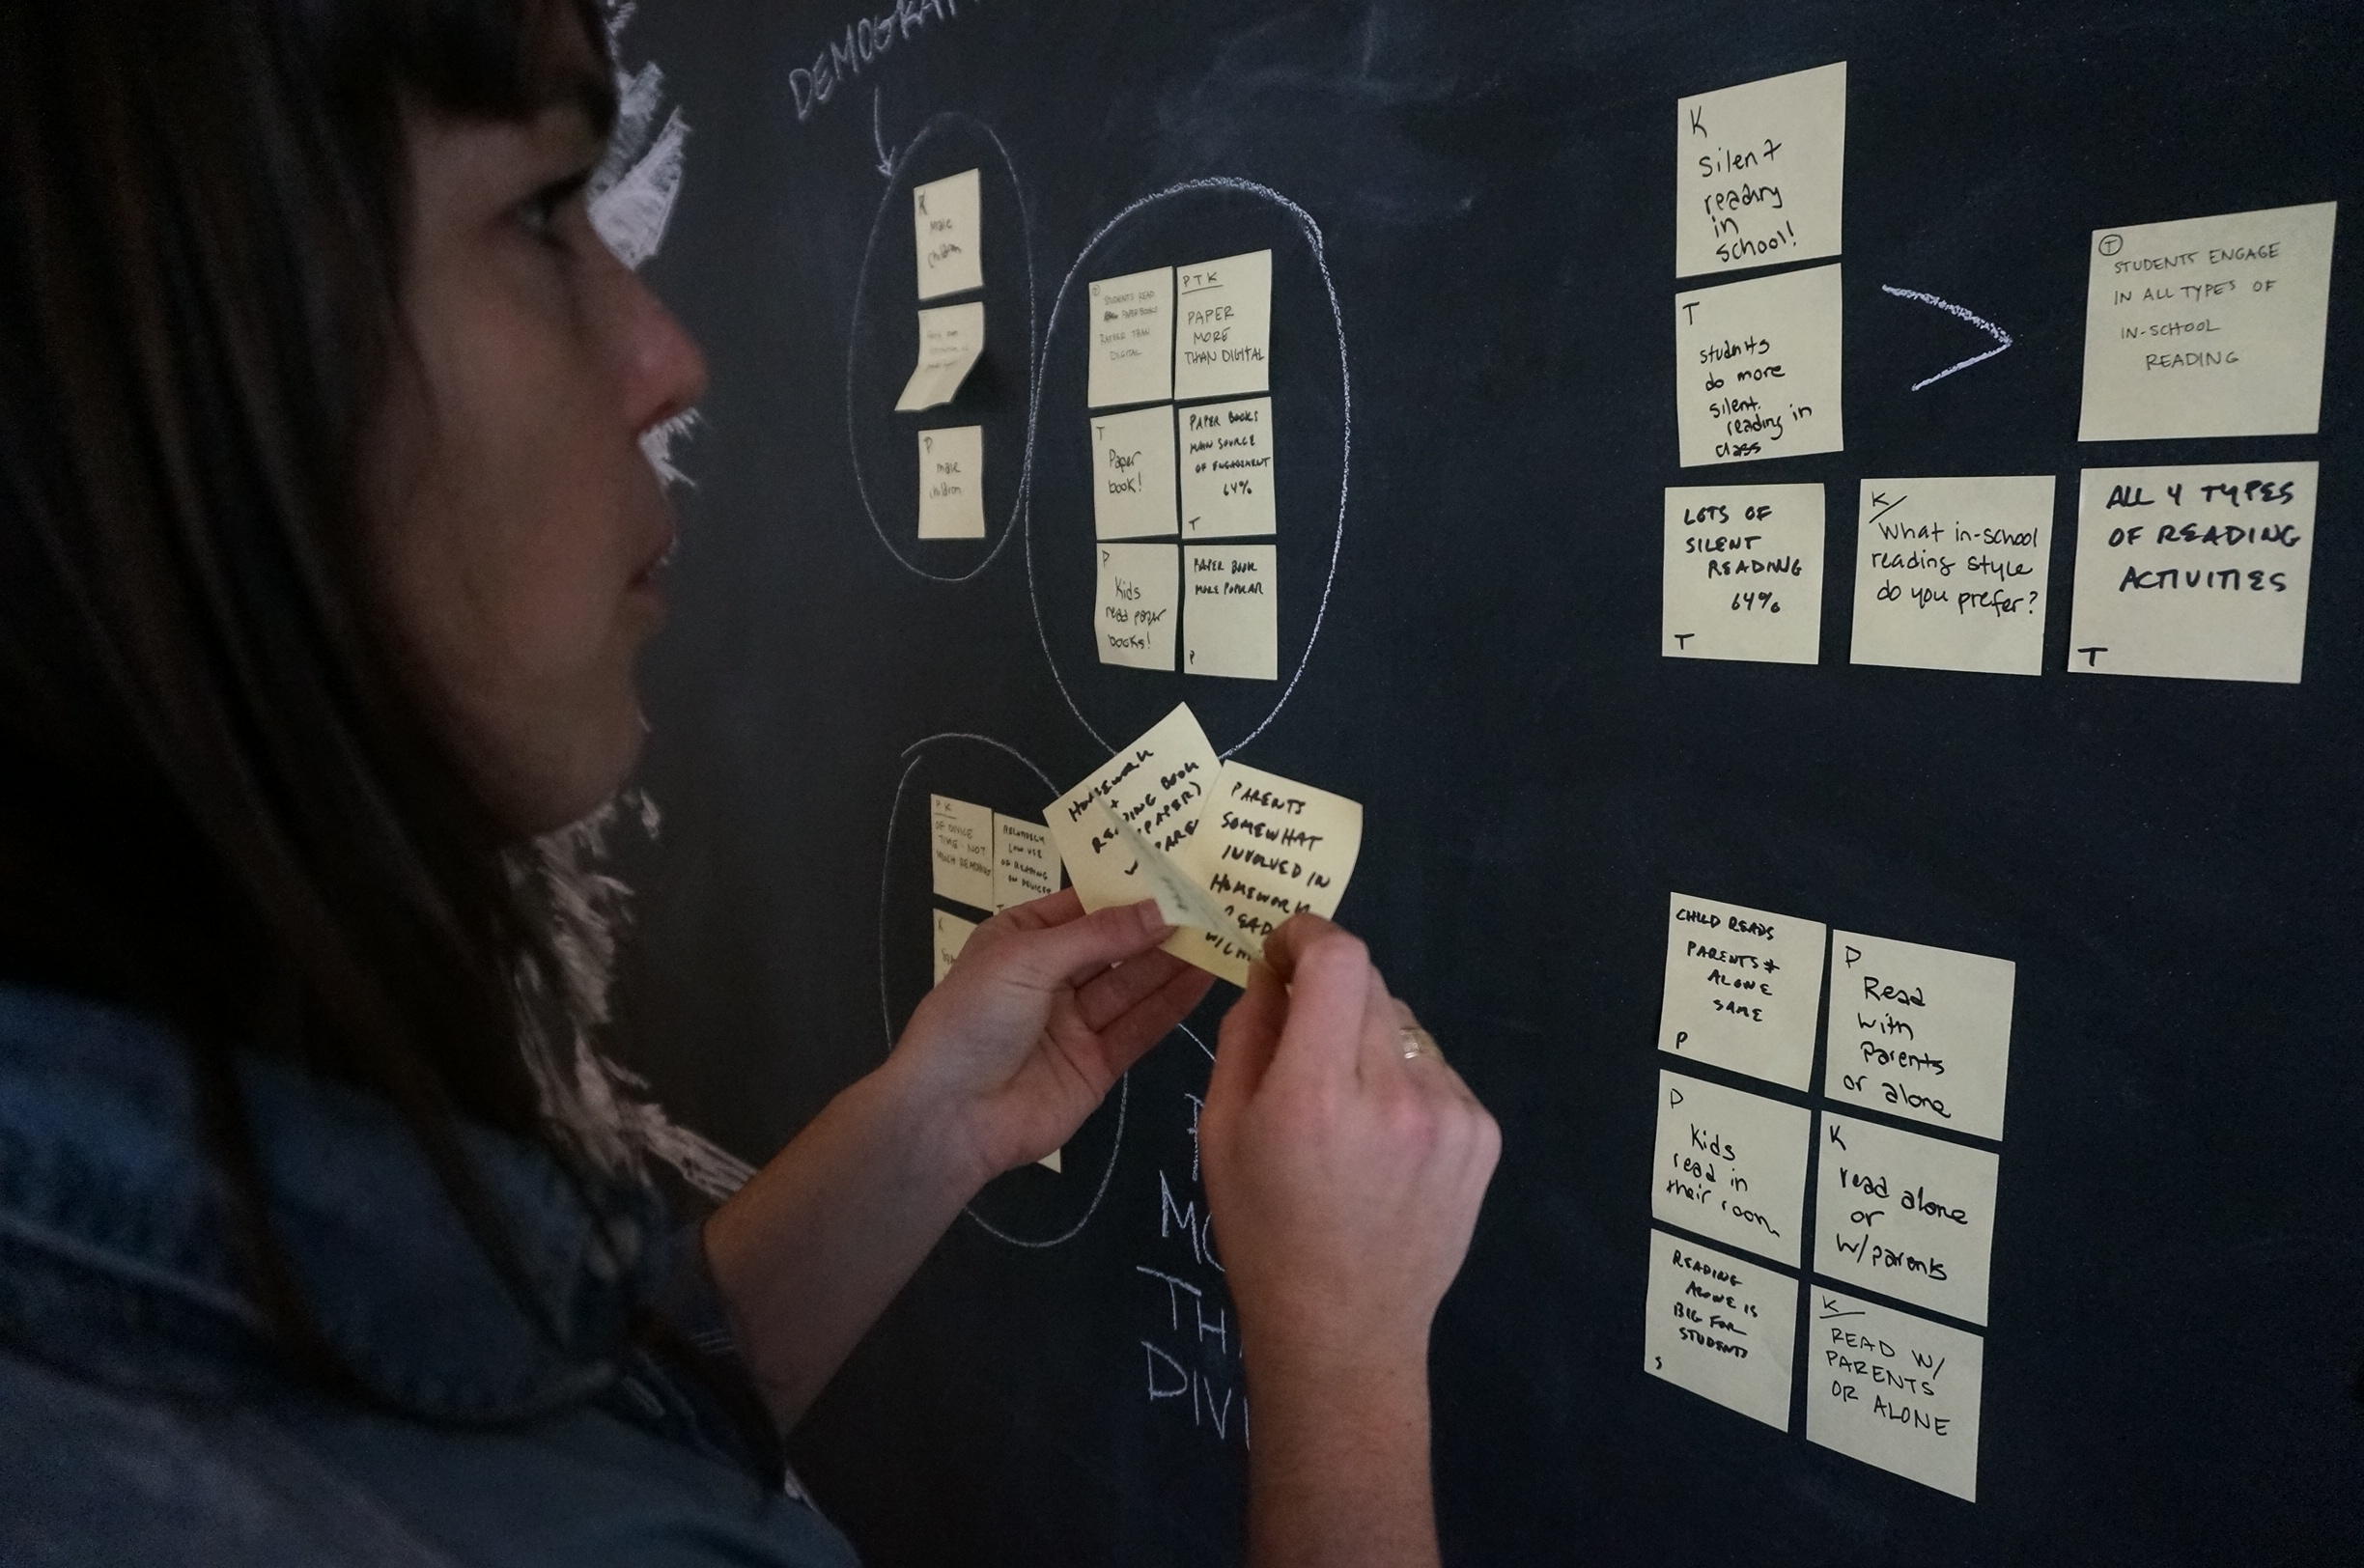 K
male
children
P
male
children
T
STUDENTS READ
PAPER BOOKS
RATHER THAN
DIGITAL
PTK
PAPER
MORE
THAN DIGITAL
T
Paper
book!
PAPER BOOKS
MAIN SOURCE
OF ENGAGEMENT
64%
T
P
Kids
read paper
books!
PAPER BOOK
MORE POPULAR
P
PK
OF DEVICE
TIME NOT
MUCH READING
RELATIVELY
LOW USE
OF READING
ON DEVICES
K
HOMEWORK
+
BOOK
(PAPER)
PARENTS
SOMEWHAT
INVOLVED IN
HOMEWORK
K
silent
reading
in
school!
T
students
do more
silent
reading in
class
T
STUDENTS ENGAGE
IN ALL TYPES OF
IN-SCHOOL
READING
LOTS OF
SILENT
READING
64%
T
K
What in-school
reading style
do you prefer?
ALL 4 TYPES
OF READING
ACTIVITIES
T
CHILD READS
PARENTS +
ALONE
SAME
P
P
Read
with
Parents
or alone
P
Kids
read in
their room
K
read alone
or
w/parents
READING
ALONE IS
BIG FOR
STUDENTS
S
K
READ W/
PARENTS
OR ALONE